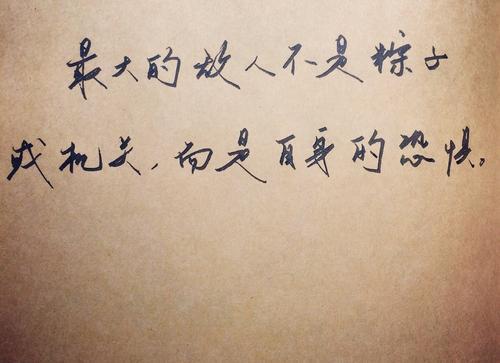 最大的敌人不是粽子
或机关，而是自身的恐惧。